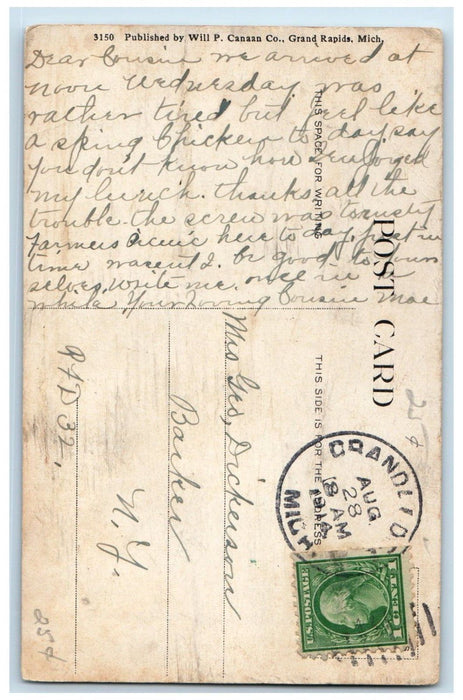 3150 Published by Will P. Canaan Co., Grand Rapids, Mich.
Dear Cousin we arrived at
noon Wednesday was
rather tired but feel like
a spring Chicken to day. say
you dont know how I enjoyed
my lunch. thanks all the
trouble. the screw was to rusty
Farmers Picnic here to day. just in
time wasent I. be good to your
selves, write me. once in a
while Your Loving Cousin Mae
THIS SPACE FOR WRITING
POST CARD
THIS SIDE IS FOR THE ADDRESS
Mrs Geo, Dickerson
Barker
N.Y.
RFD 32.
GRAND LED
AUG
28
8 AM
1914
MICH
U.S. POSTAGE
1 CENT 1
25¢
25¢